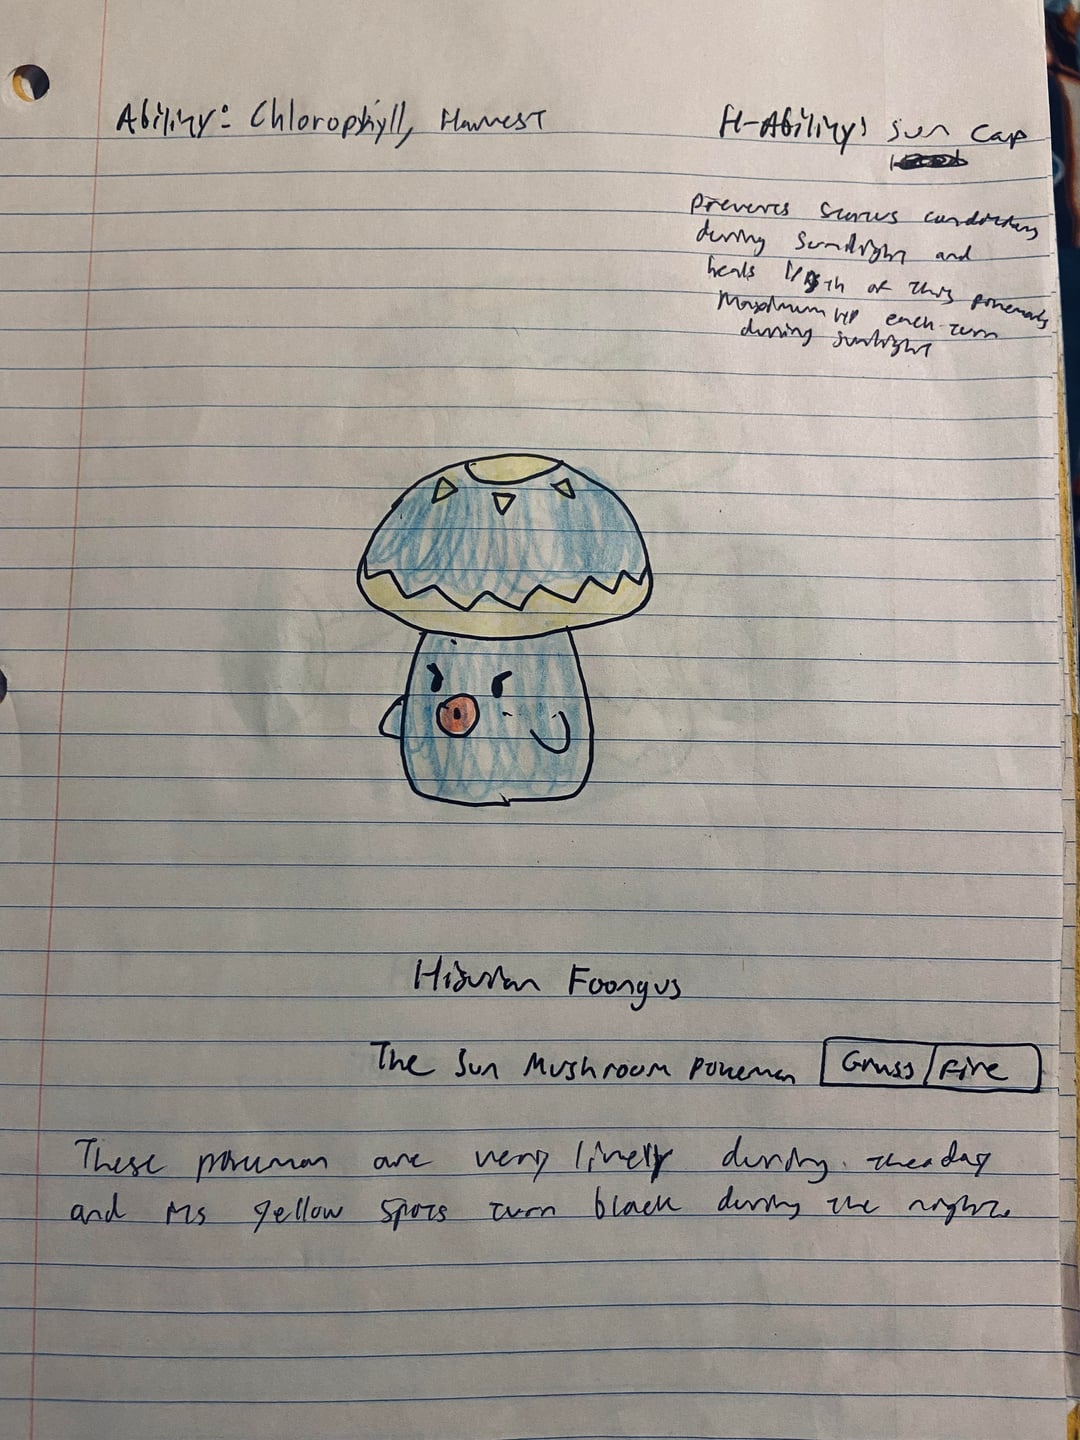 Ability: Chlorophyll, Harvest
H-Ability: Sun Cap
prevents status conditions
during sunlight and
heals of this pokemon's
Maximum HP each turn
during sunlight
Hisuian Foongus
The Sun Mushroom Pokemon
Grass/Fire
These pokemon are very lively during the day
and its yellow spots turn black during the night.